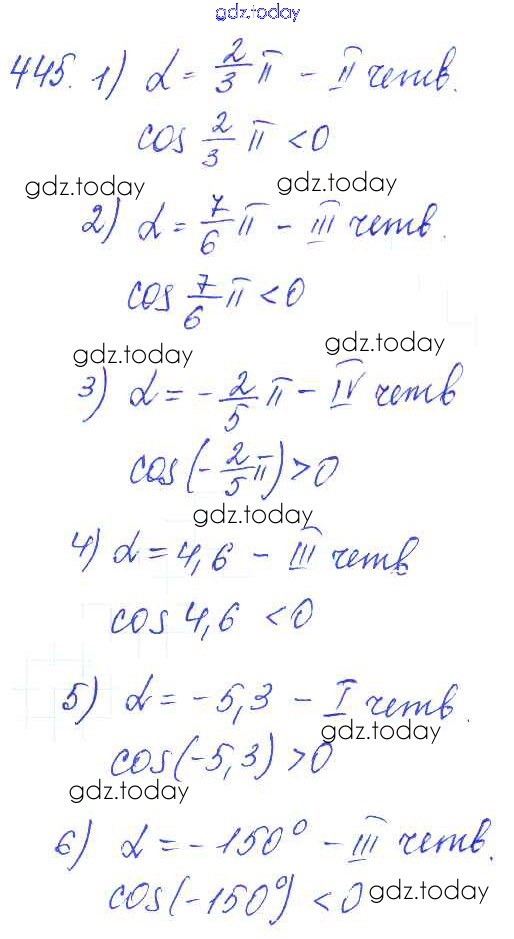 gdz.today
445. 1) α = 2/3 π – II четв.
cos 2/3 π < 0
gdz.today gdz.today
2) α = 7/6 π – III четв.
cos 7/6 π < 0
gdz.today gdz.today
3) α = - 2/5 π – IV четв
cos(- 2/5 π) > 0
gdz.today
4) α = 4,6 – III четв
cos 4,6 < 0
5) α = -5,3 – I четв.
gdz.today
cos(-5,3) > 0
gdz.today
6) α = -150° – III четв.
cos(-150°) < 0 gdz.today